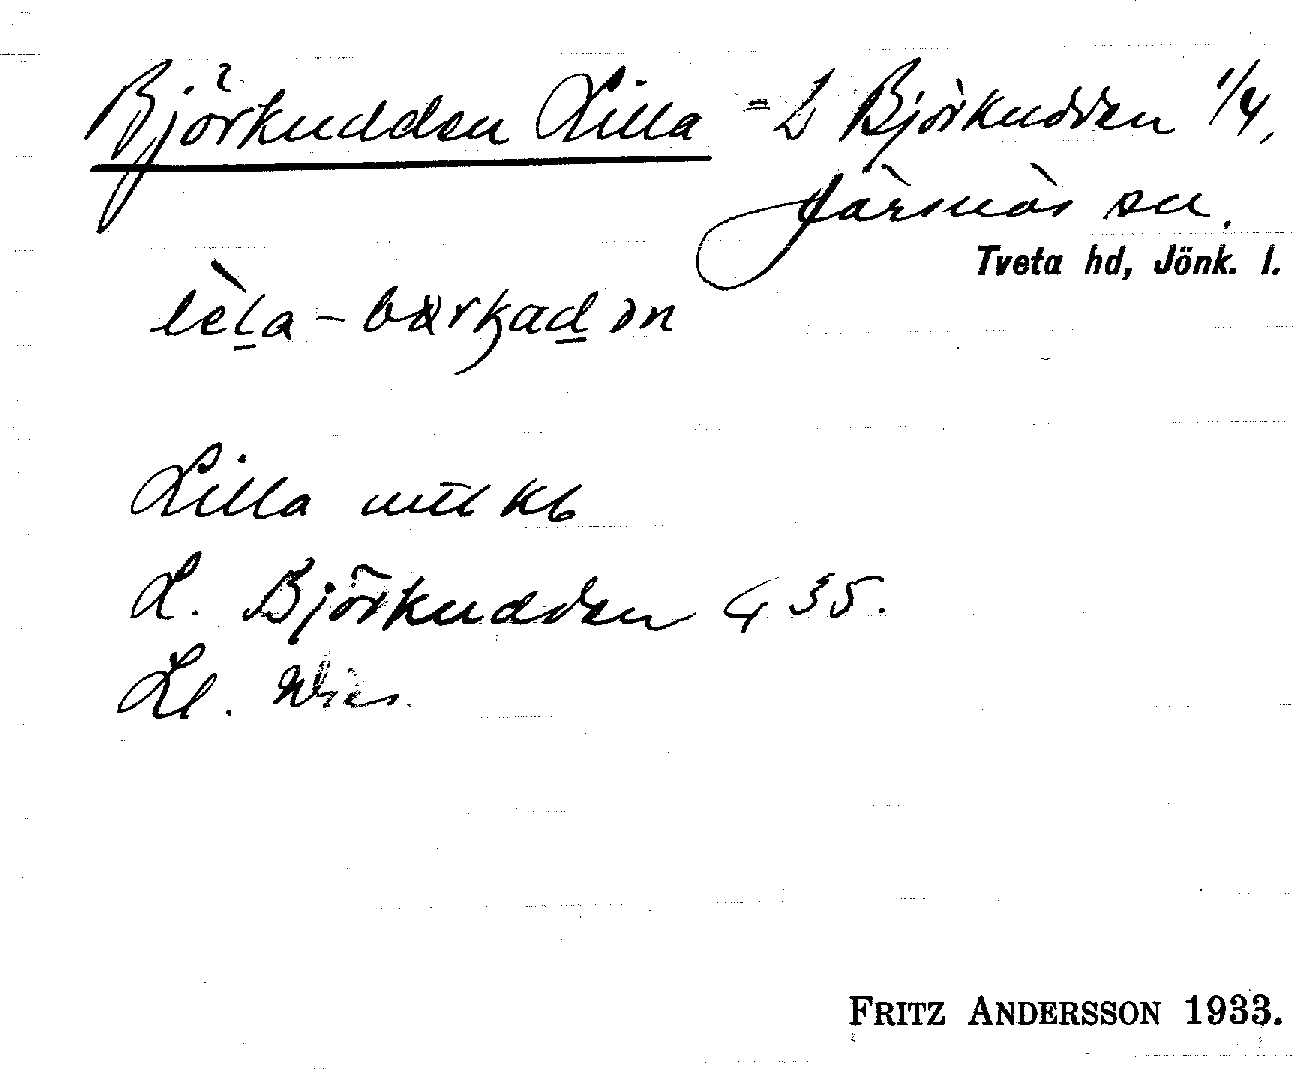 Björkudden Lilla = L Björkudden 1/4,
Järsnäs sn.
Tveta hd, Jönk. l.
lèla - bærkadən
Lilla utt kb
L. Björkudden G 35.
Ll.
FRITZ ANDERSSON 1933.